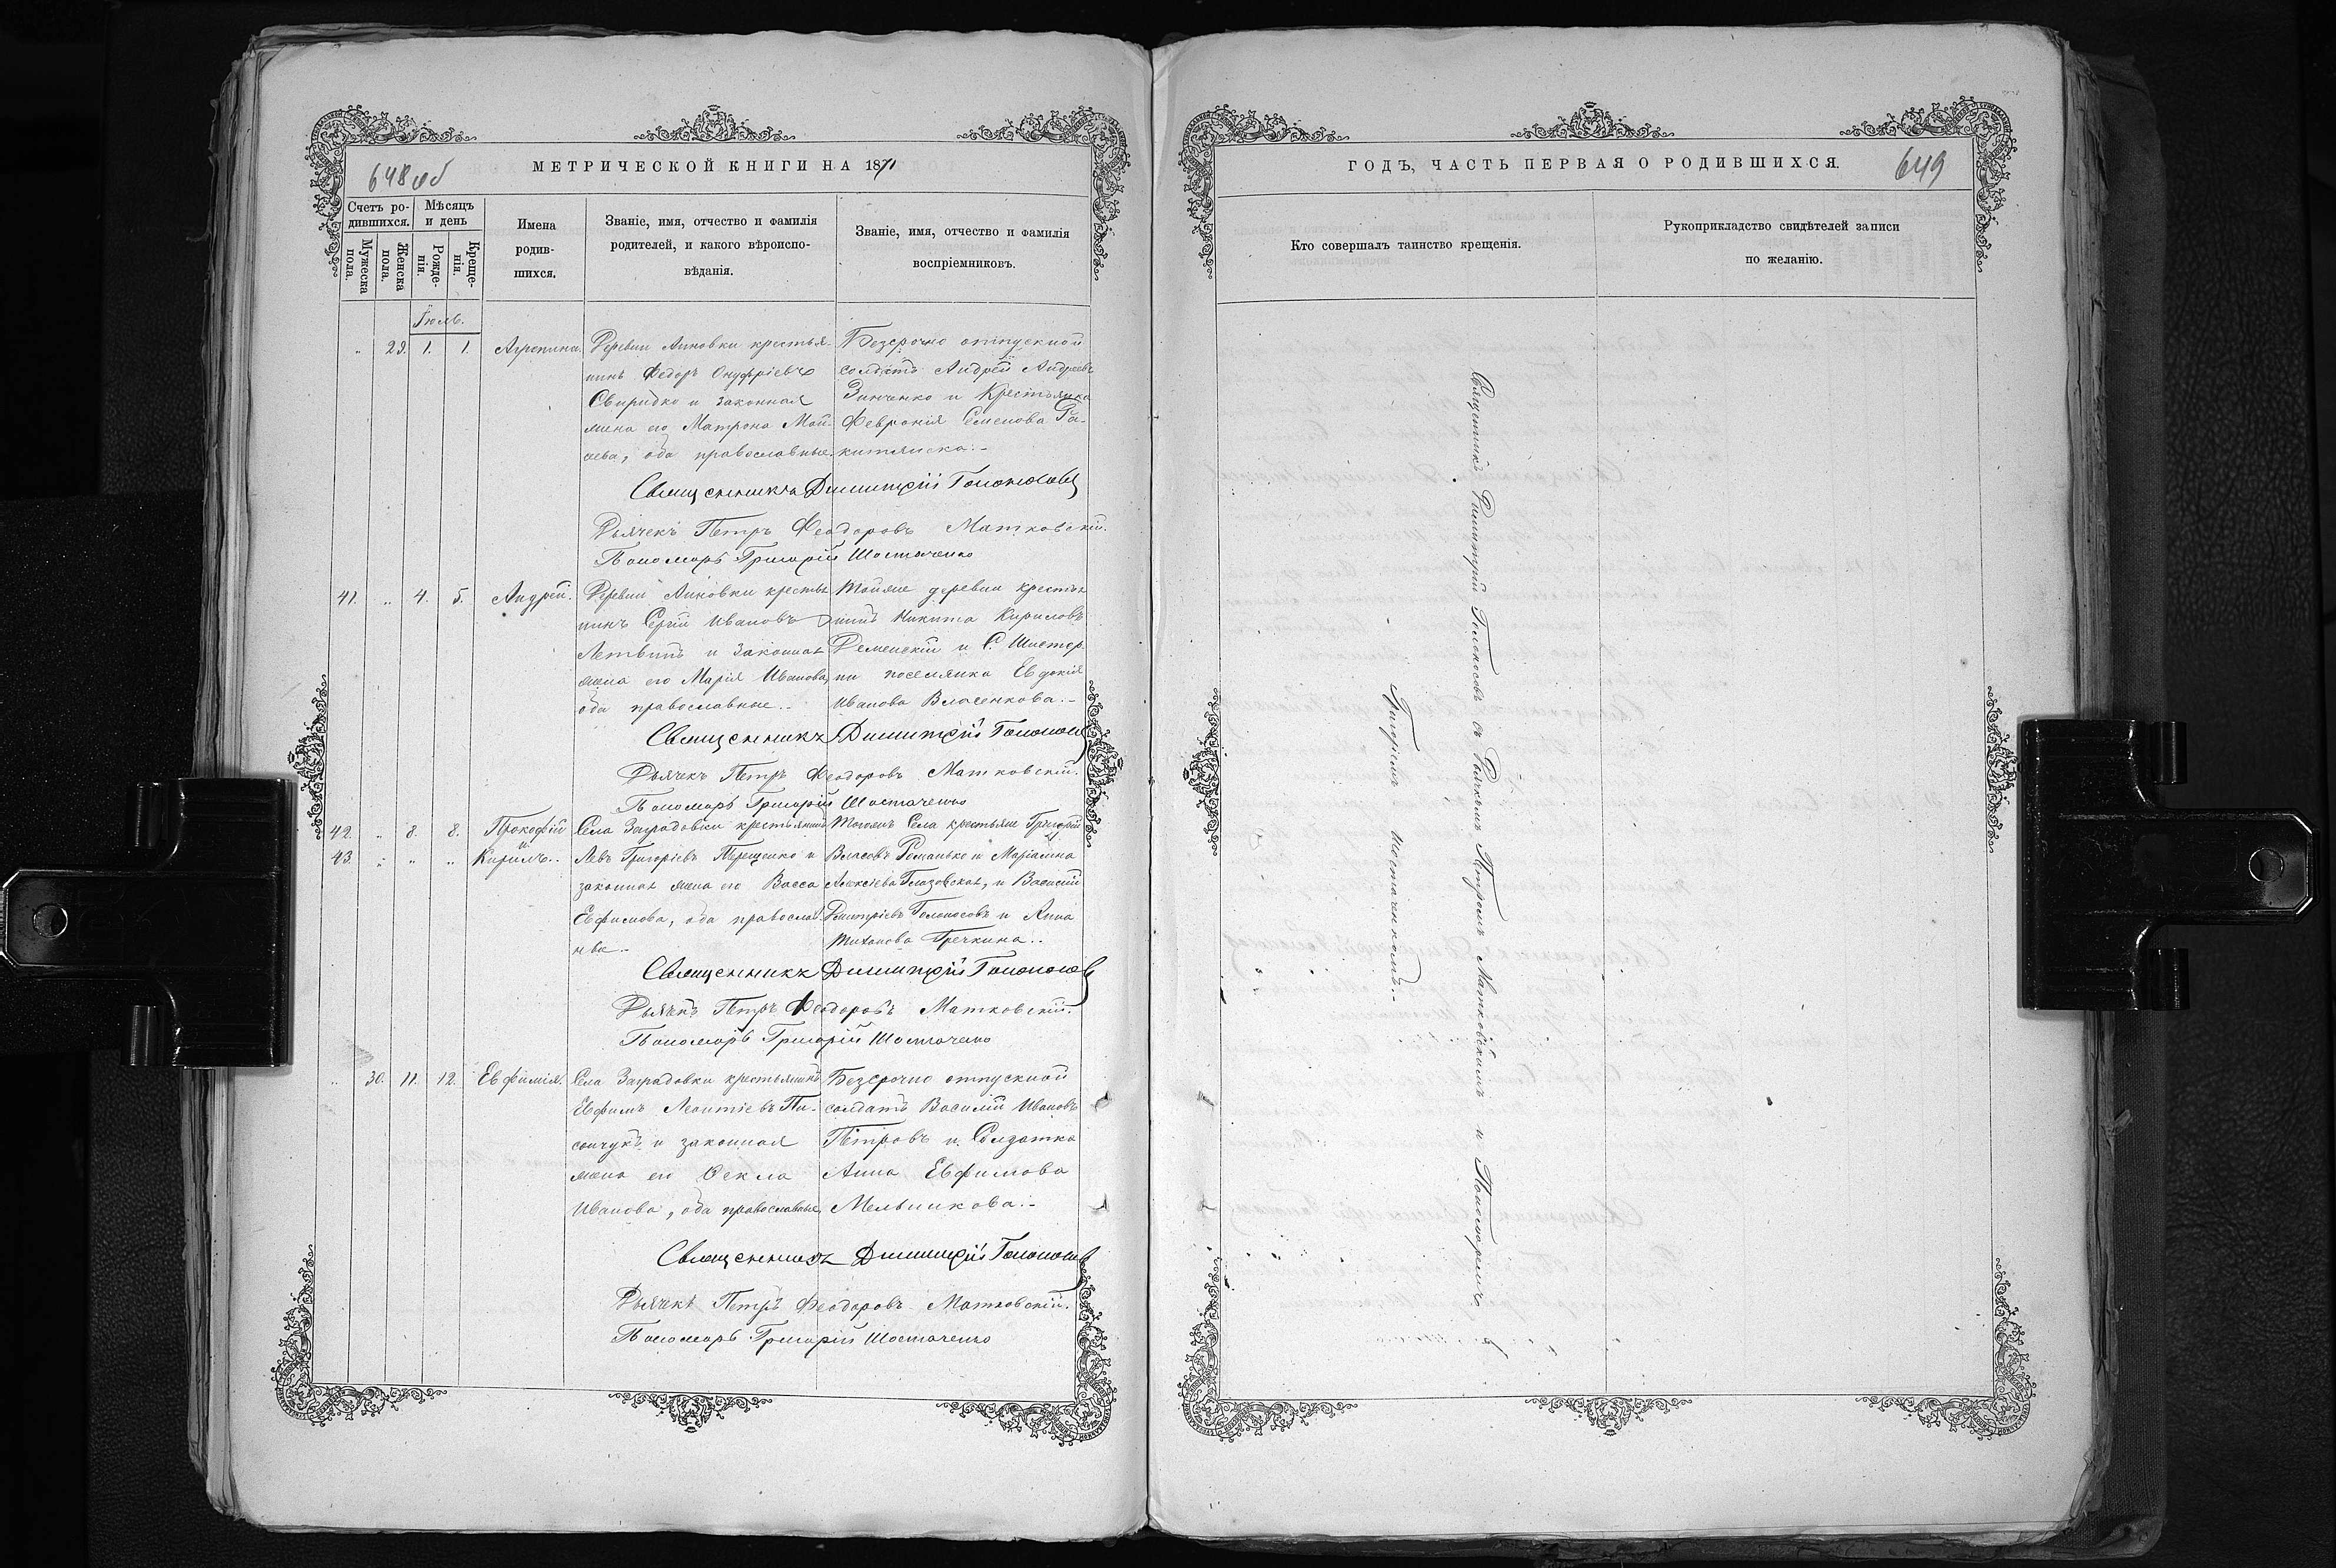 МЕТРИЧЕСКОЙ КНИГИ НА 1871
648 об
Счетъ ро-
дившихся.
Мужеска
пола.
Женска
пола.
Мѣсяцъ
и день
Рожде-
нія.
Креще-
нія.
Имена
родив-
шихся.
Званіе, имя, отчество и фамилія
родителей, и какого вѣроиспо-
вѣданія.
Званіе, имя, отчество и фамилія
воспріемниковъ.
Іюль.
„ 29. 1. 1. Агрепина.
Деревни Анновки крестья-
нинъ Федоръ Онуфріевъ
Свиридко и законная
жена его Матрона Мои-
сеева, оба православные.
Безсрочно отпускной
солдатъ Андрей Андреевъ
Зинченко и Крестьянка
Февронія Семенова Ра-
китянска.-
Священникъ Димитрій Голоносовъ
Дьячекъ Петръ Феодоровъ Матковскій.
Пономарь Григорій Шостаченко
41. „ 4. 5. Андрей.
Деревни Анновки крестья
нинъ Сергій Ивановъ
Летвинъ и законная
жена его Марія Иванова,
оба православные..
Тойже деревни крестья
нинъ Никита Кириловъ
Деменскій и С. Шестер
ни поселянка Евдокія
Иванова Власенкова.-
Священникъ Димитрій Голоносовъ
Дьячекъ Петръ Феодоровъ Матковскій.
Пономарь Григорій Шостаченко
42. „ 8. 8. Прокофій
и
43 „ „ „ Кирилъ..
Села Заградовки крестьянинъ
Левъ Григоріевъ Терещенко и
законная жена его Васса
Евфимова, оба православ
ные..
Тогожъ Села крестьяне Григорій
Власовъ Романько и Маріанна
Алексіева Глазовская, и Василій
Дмитріевъ Голоносовъ и Анна
Тиханова Гречкина..
Священникъ Димитрій Голоносовъ
Дьячекъ Петръ Феодоровъ Матковскій.
Пономарь Григорій Шостаченко
„ 30. 11. 12. Евфимія.
Села Заградовки крестьянинъ
Евфимъ Леонтіевъ Пи-
санчукъ и законная
жена его Ѳекла
Иванова, оба православные,
Безсрочно отпускной
солдатъ Василій Ивановъ
Петровъ и Солдатка
Анна Евфимова
Мельникова.-
Священникъ Димитрій Голоносовъ
Дьячекъ Петръ Феодоровъ Матковскій.
Пономарь Григорій Шостаченко
ГОДЪ, ЧАСТЬ ПЕРВАЯ О РОДИВШИХСЯ.
649
Кто совершалъ таинство крещенія.
Рукоприкладство свидѣтелей записи
по желанію.
Священникъ Димитрій Голоносовъ съ Дьячкомъ Петромъ Матковскимъ и Пономаремъ
Григоріемъ Шостаченкомъ.-